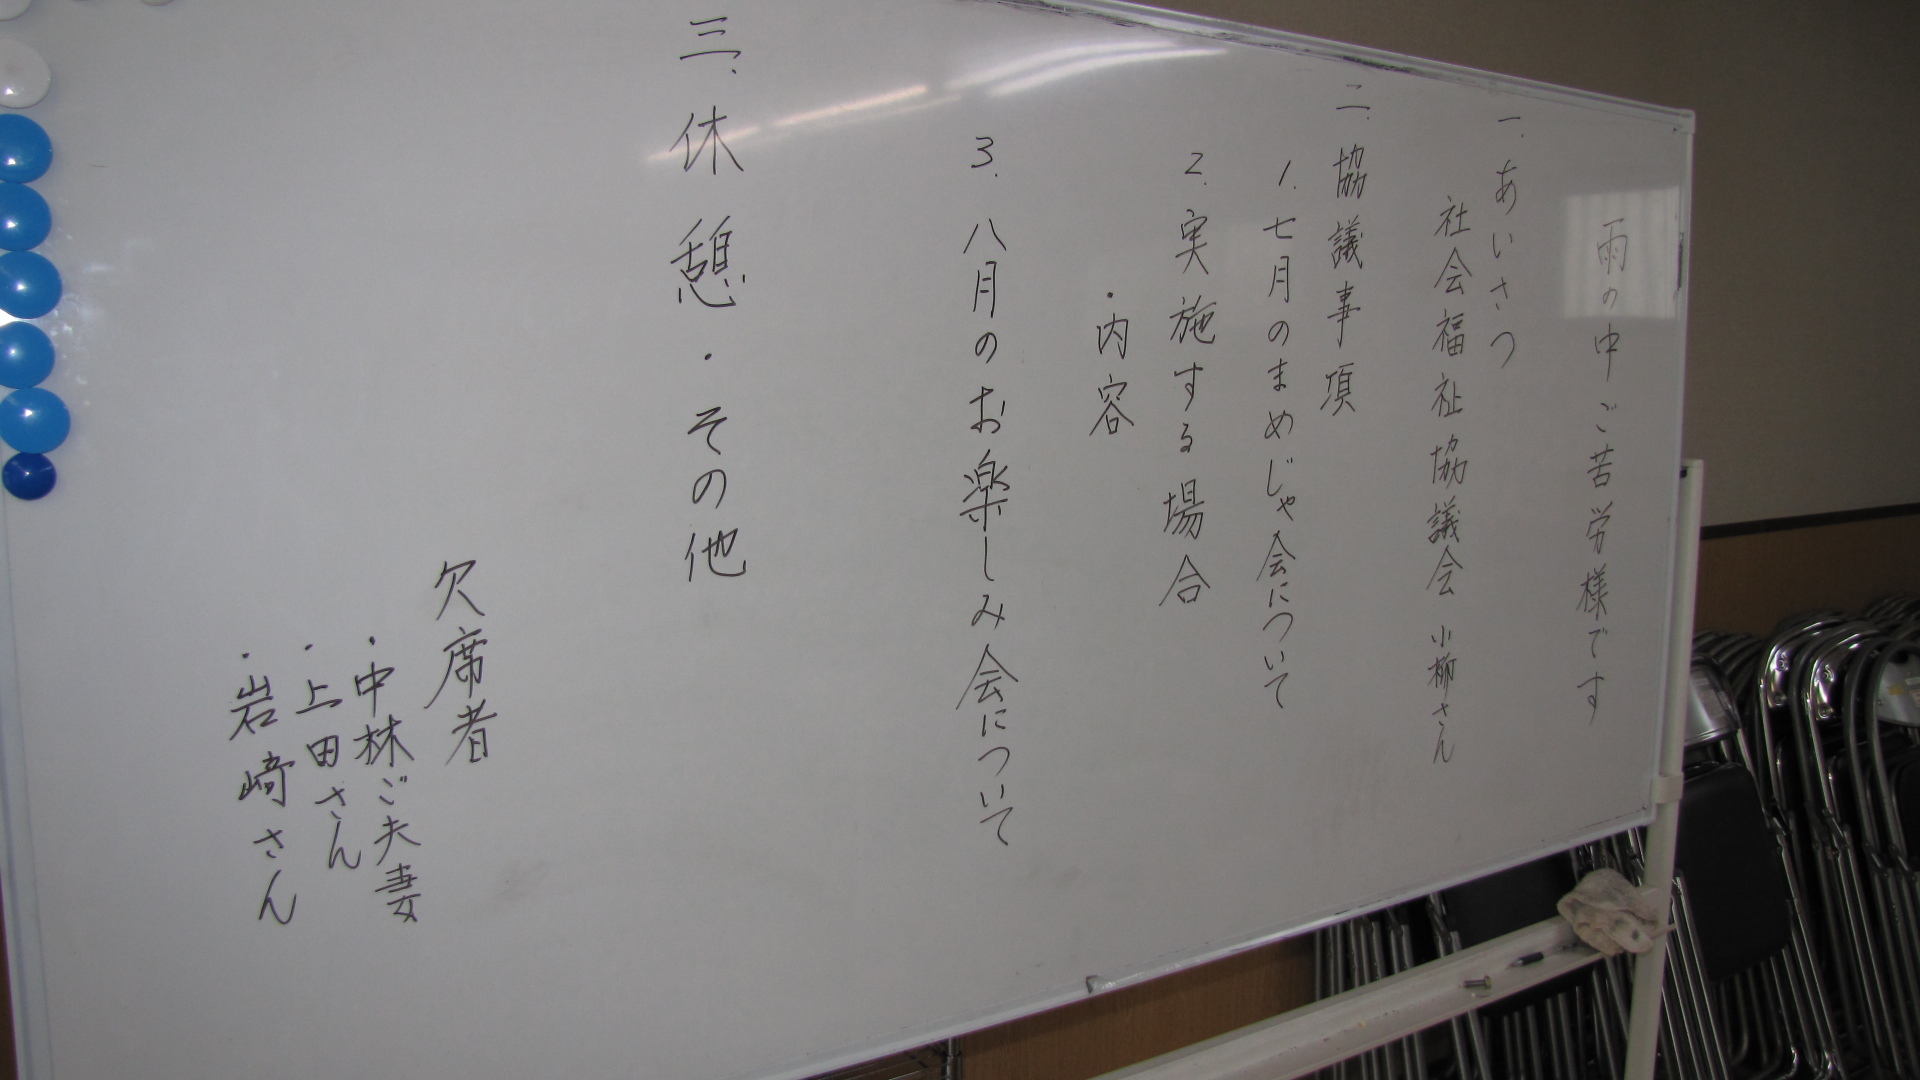 雨の中ご苦労様です
一.あいさつ
社会福祉協議会 小柳さん
二.協議事項
1.七月のまめじゃ会について
2.実施する場合
・内容
3.八月のお楽しみ会について
三.休憩・その他
欠席者
・中林ご夫妻
・上田さん
・岩﨑さん